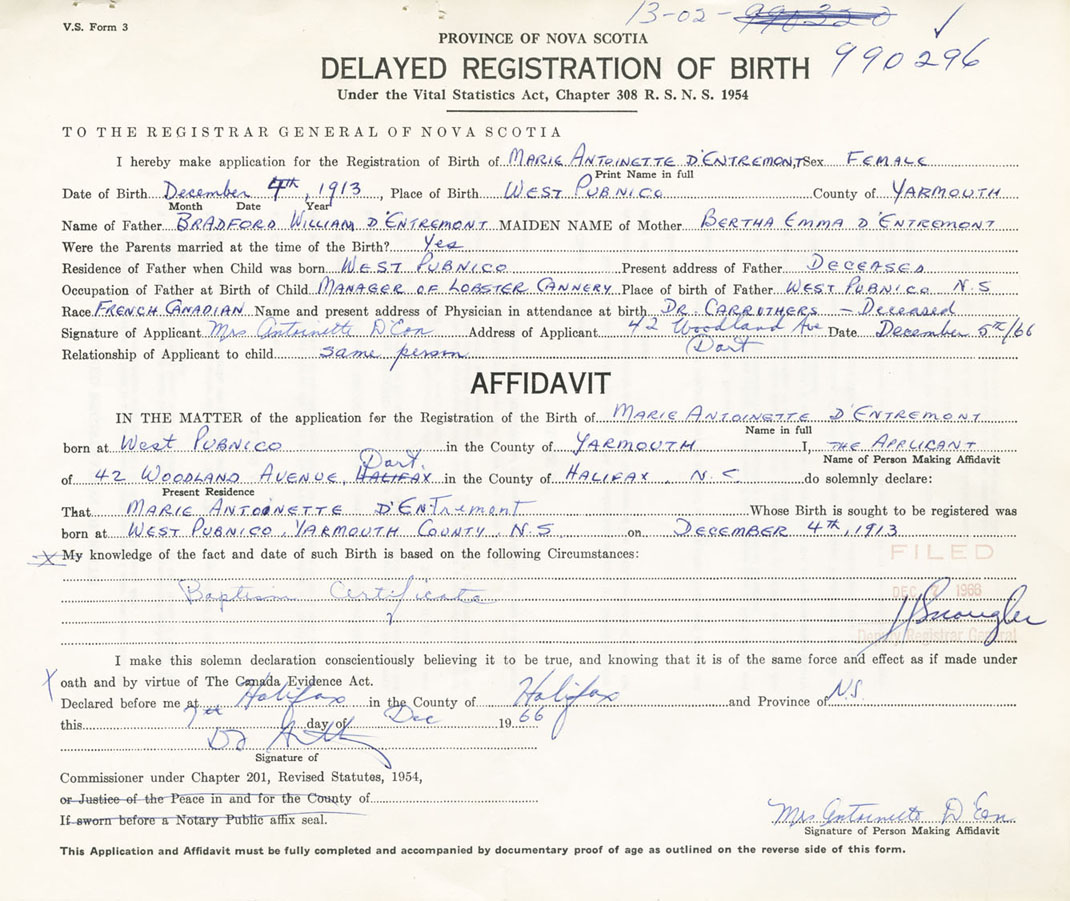 13-02-990320
V.S. Form 3
990296
PROVINCE OF NOVA SCOTIA
DELAYED REGISTRATION OF BIRTH
Under the Vital Statistics Act, Chapter 308 R. S. N. S. 1954
TO THE REGISTRAR GENERAL OF NOVA SCOTIA
I hereby make application for the Registration of Birth of MARIE ANTOINETTE D'ENTREMONT, Sex FEMALE
Print Name in full
Date of Birth December 4th, 1913, Place of Birth WEST PUBNICO County of YARMOUTH
Month Date Year
Name of Father BRADFORD WILLIAM D'ENTREMONT MAIDEN NAME of Mother BERTHA EMMA D'ENTREMONT
Were the Parents married at the time of the Birth? Yes
Residence of Father when Child was born WEST PUBNICO Present address of Father DECEASED
Occupation of Father at Birth of Child MANAGER OF LOBSTER CANNERY Place of birth of Father WEST PUBNICO N.S
Race FRENCH CANADIAN Name and present address of Physician in attendance at birth DR. CARROTHERS - Deceased
Signature of Applicant Mrs Antoinette D'Eon Address of Applicant 42 Woodland Ave Date December 5th/66
Relationship of Applicant to child same person Dart
AFFIDAVIT
IN THE MATTER of the application for the Registration of the Birth of MARIE ANTOINETTE D'ENTREMONT
Name in full
born at West PUBNICO in the County of YARMOUTH I, THE APPLICANT
Name of Person Making Affidavit
of 42 WOODLAND AVENUE, HALIFAX Dart. in the County of HALIFAX, N.S do solemnly declare:
Present Residence
That MARIE ANTOINETTE D'ENTremont Whose Birth is sought to be registered was
born at WEST PUBNICO, YARMOUTH COUNTY, N.S on DECEMBER 4th, 1913
X My knowledge of the fact and date of such Birth is based on the following Circumstances:
FILED
Baptism Certificate
DEC 1966
Deputy Registrar General
I make this solemn declaration conscientiously believing it to be true, and knowing that it is of the same force and effect as if made under
X oath and by virtue of The Canada Evidence Act.
Declared before me at Halifax in the County of Halifax and Province of N.S.
this 7th day of Dec 1966
Signature of
Commissioner under Chapter 201, Revised Statutes, 1954,
or Justice of the Peace in and for the County of
If sworn before a Notary Public affix seal.
Mrs. Antoinette D'Eon
Signature of Person Making Affidavit
This Application and Affidavit must be fully completed and accompanied by documentary proof of age as outlined on the reverse side of this form.